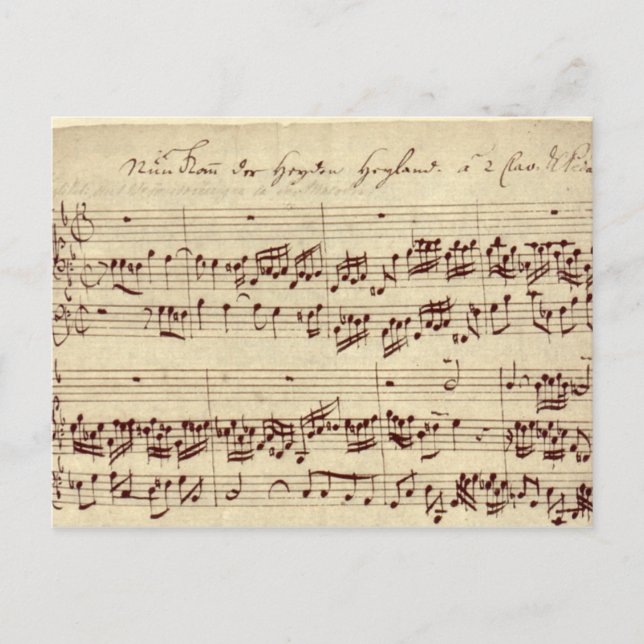 Nun Kom̅ der Heyden Heyland. â 2 Clav. & Peda